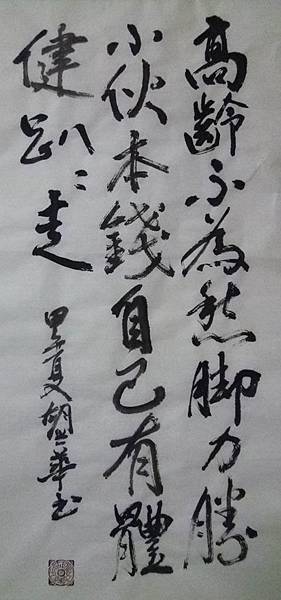 高齡不為愁脚力勝
小伙本錢自己有體
健趴〻走
甲午夏華书